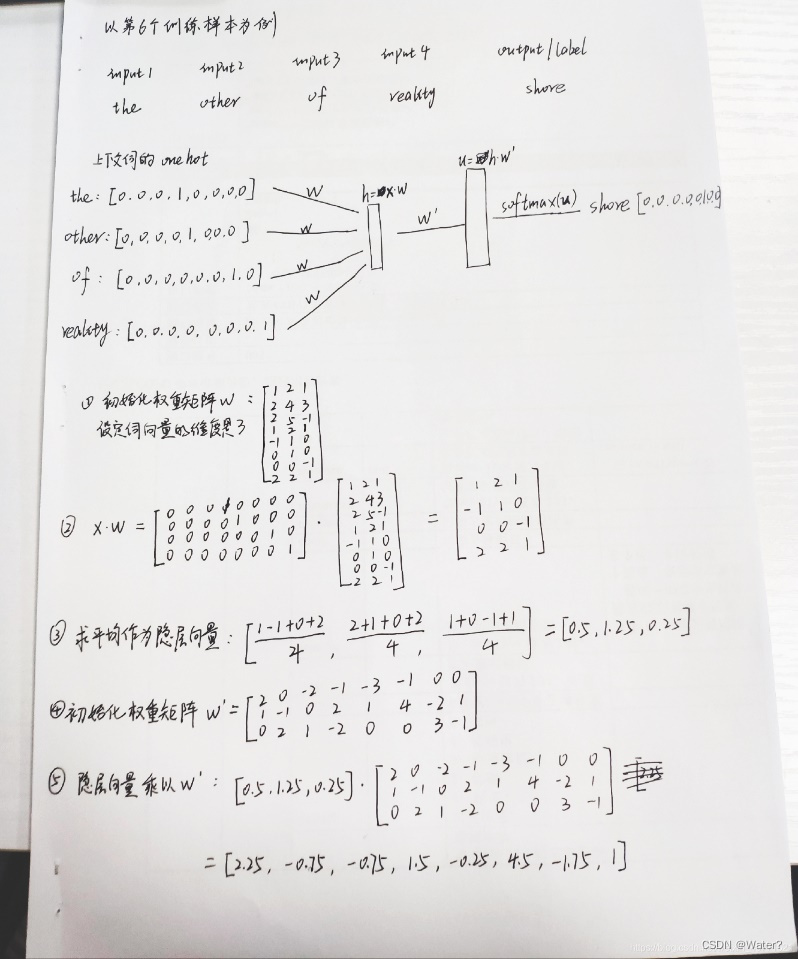 以第6个训练样本为例
input 1 input 2 input 3 input 4 output / label
the other of reality shore
上下文词的 one hot
the: [0.0.0,1,0,0,0,0]
other: [0,0,0,0,1,0.0.0]
of: [0.0.0,0,0.0,1.0]
reality: [0.0.0.0, 0,0.0.1]
W
W
W
W
h=x·W
W'
u=h·W'
softmax(u)
shore [0.0.0.0.0,1,0,0]
① 初始化权重矩阵 W:
设定词向量的维度是3
1 2 1
2 4 3
2 5 -1
1 2 1
-1 1 0
0 1 0
0 0 -1
2 2 1
② X·W = [0 0 0 1 0 0 0 0 · [1 2 1 = [1 2 1
0 0 0 0 1 0 0 0 2 4 3 -1 1 0
0 0 0 0 0 0 1 0 2 5 -1 0 0 -1
0 0 0 0 0 0 0 1] 1 2 1 2 2 1]
-1 1 0
0 1 0
0 0 -1
2 2 1]
③ 求平均作为隐层向量: [(1-1+0+2)/4, (2+1+0+2)/4, (1+0-1+1)/4] = [0.5, 1.25, 0.25]
④ 初始化权重矩阵 W' = [2 0 -2 -1 -3 -1 0 0
1 -1 0 2 1 4 -2 1
0 2 1 -2 0 0 3 -1]
⑤ 隐层向量乘以 W': [0.5, 1.25, 0.25] · [2 0 -2 -1 -3 -1 0 0
1 -1 0 2 1 4 -2 1
0 2 1 -2 0 0 3 -1]
= [2.25, -0.75, -0.75, 1.5, -0.25, 4.5, -1.75, 1]
CSDN @Water?